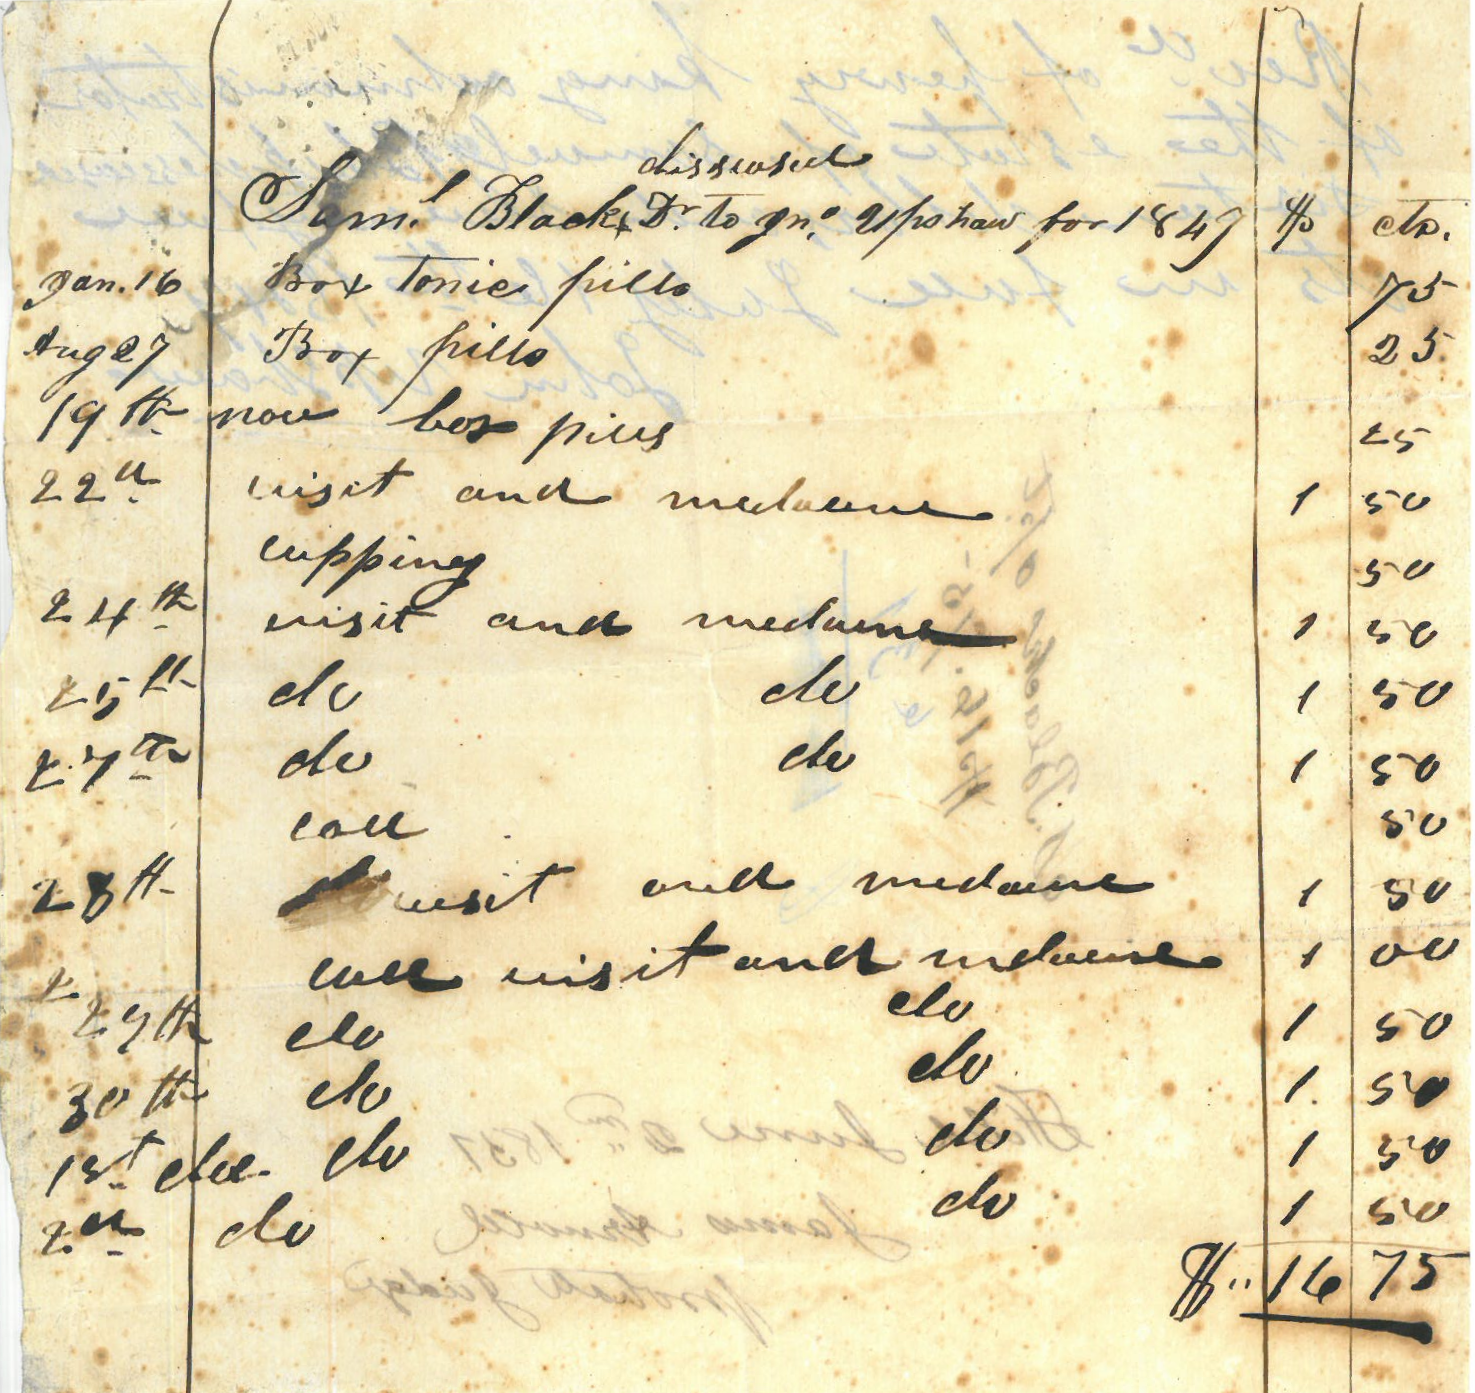 disseased
Saml. Black, Dr. to Jno. Upshaw for 1847 $ cts.
Jan. 16 Box tonic pills 75
Aug 27 Box pills 25
19th nov box pills 25
22d visit and medacine 1 50
cupping 50
24th visit and medacine 1 50
25th do do 1 50
27th do do 1 50
call 50
28th visit and medacine 1 50
call visit and mdacine 1 00
2
29th do do 1 50
30th do do 1. 50
1st dec. do do 1 50
2d do do 1 50
$ 16 75